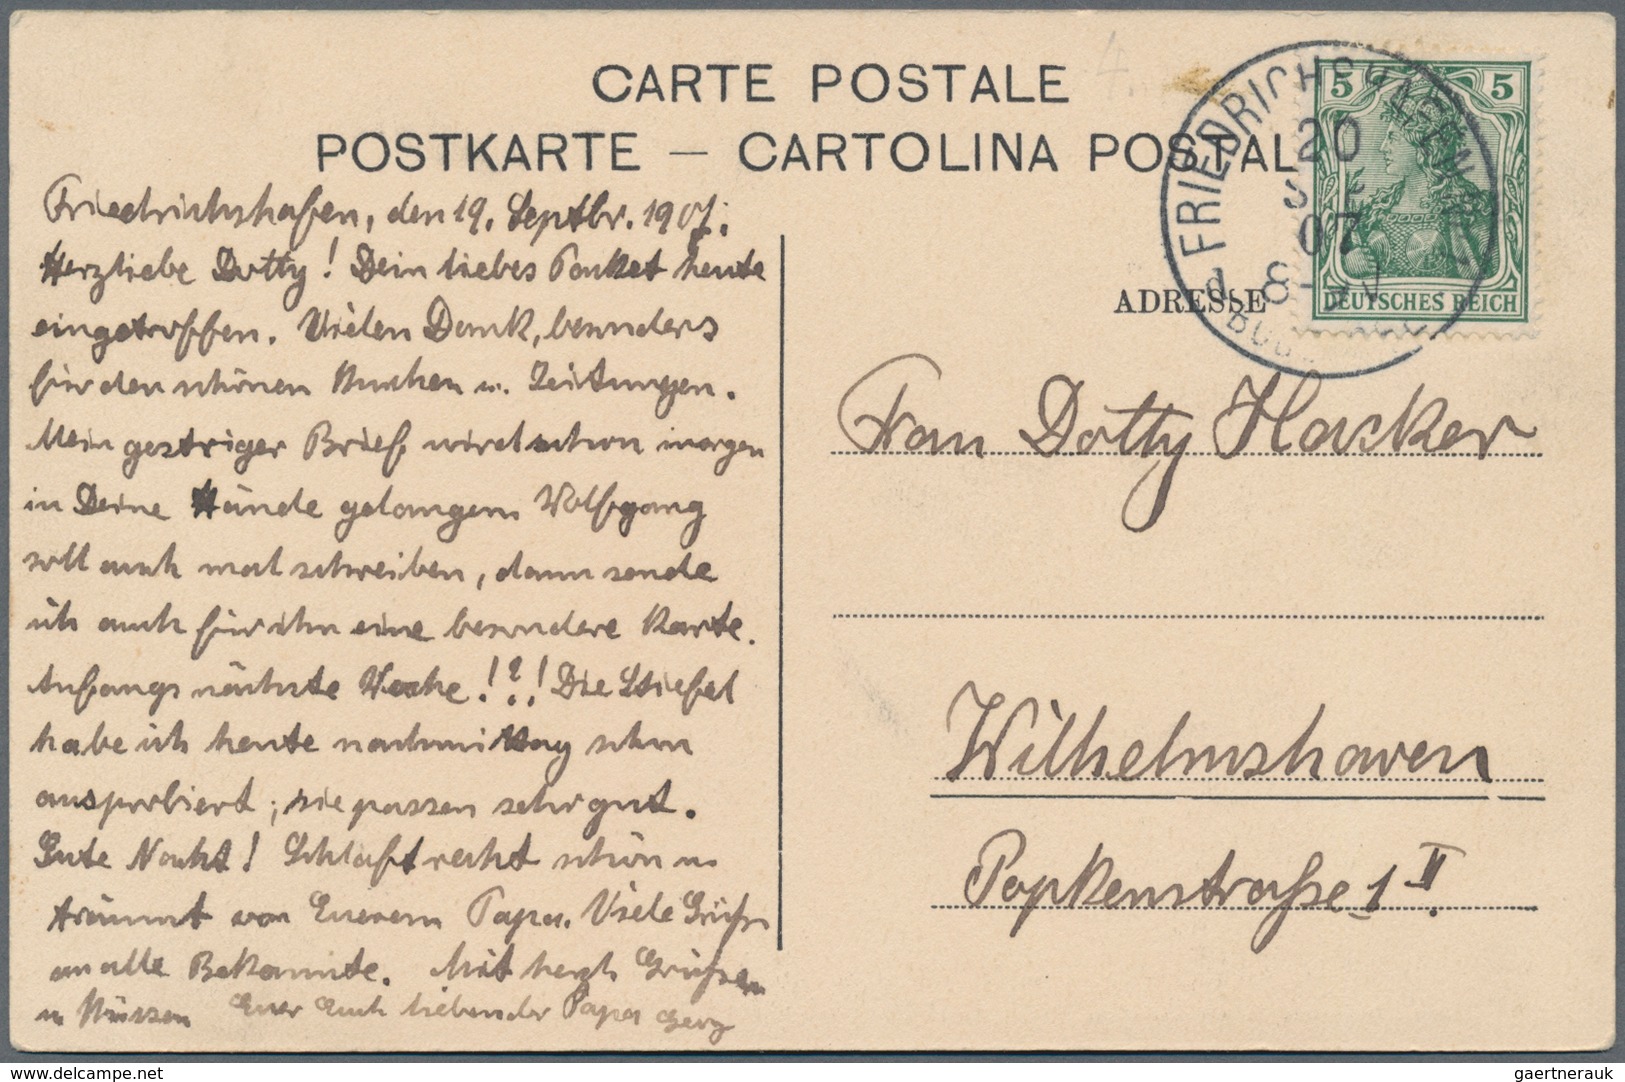 CARTE POSTALE
POSTKARTE — CARTOLINA POSTAL
Friedrichshafen, den 19. Septbr. 1907.
Herzliebe Dotty! Dein liebes Packet heute
eingetroffen. Vielen Dank, besonders
für den schönen Kuchen u. Zeitungen.
Mein gestriger Brief wird schon morgen
in Deine Hände gelangen. Wolfgang
soll auch mal schreiben, dann sende
ich auch für ihn eine besondere Karte.
Anfangs nächste Woche!?! Die Stiefel
habe ich heute nachmittag schon
ausprobiert; sie passen sehr gut.
Gute Nacht! Schlaft recht schön u.
träumt von Euerem Papa. Viele Grüße
an alle Bekannte. Mit herzl. Grüßen
u. Küssen Euer Euch liebender Papa
FRIEDRICHSHAFEN
20
07
8
5 5
DEUTSCHES REICH
ADRESSE
Frau Dotty Hacker
Wilhelmshaven
Popkenstraße 1 II.
www.delcampe.net
gaertnerauk